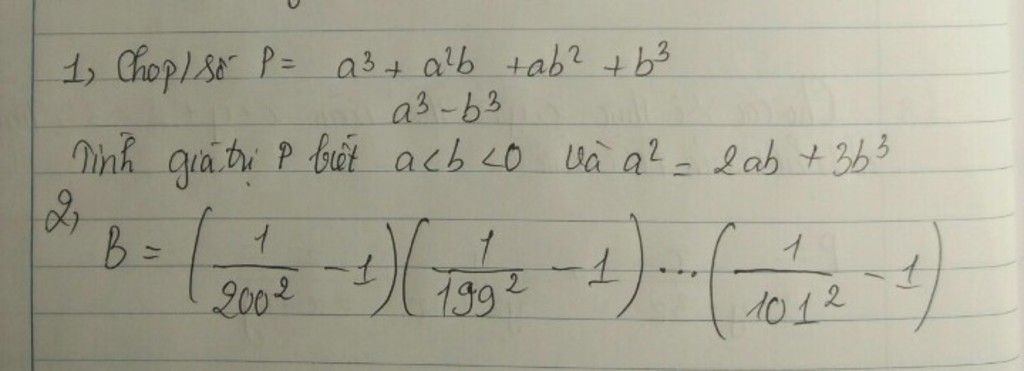 1, Cho p/số P = a³ + a²b + ab² + b³
a³ - b³
Tính giá trị P biết a < b < 0 và a² = 2ab + 3b³
2,
B = (1/200² - 1)(1/199² - 1)...(1/101² - 1)